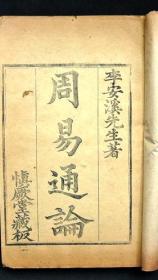 李安溪先生著
周易通論
慎厥堂藏板